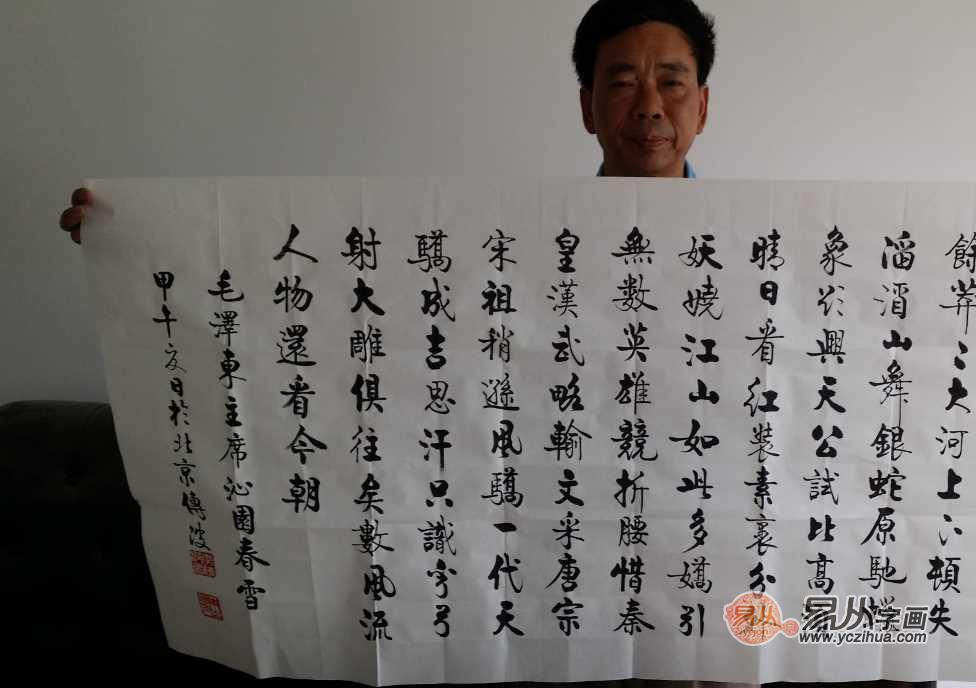 餘莽〻大河上下頓失
滔滔山舞銀蛇原馳蠟
象欲與天公試比高
晴日看紅裝素裹分
妖嬈江山如此多嬌引
無數英雄競折腰惜秦
皇漢武略輸文采唐宗
宋祖稍遜風騷一代天
驕成吉思汗只識彎弓
射大雕俱往矣數風流
人物還看今朝
毛澤東主席沁園春雪
甲午夏日於北京傳波
易从
易从字画
www.yczihua.com